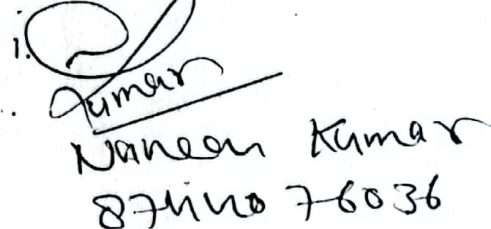 1.
Kumar
Naneen Kumar
8744076036